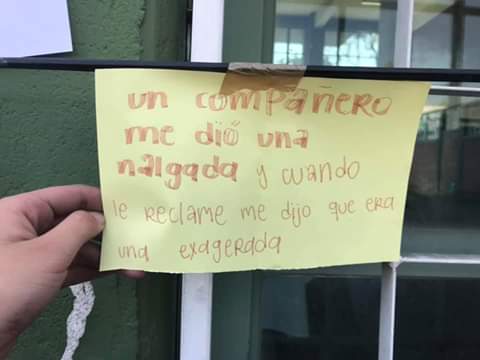 un compañero
me dió una
nalgada y cuando
le reclame me dijo que era
una exagerada